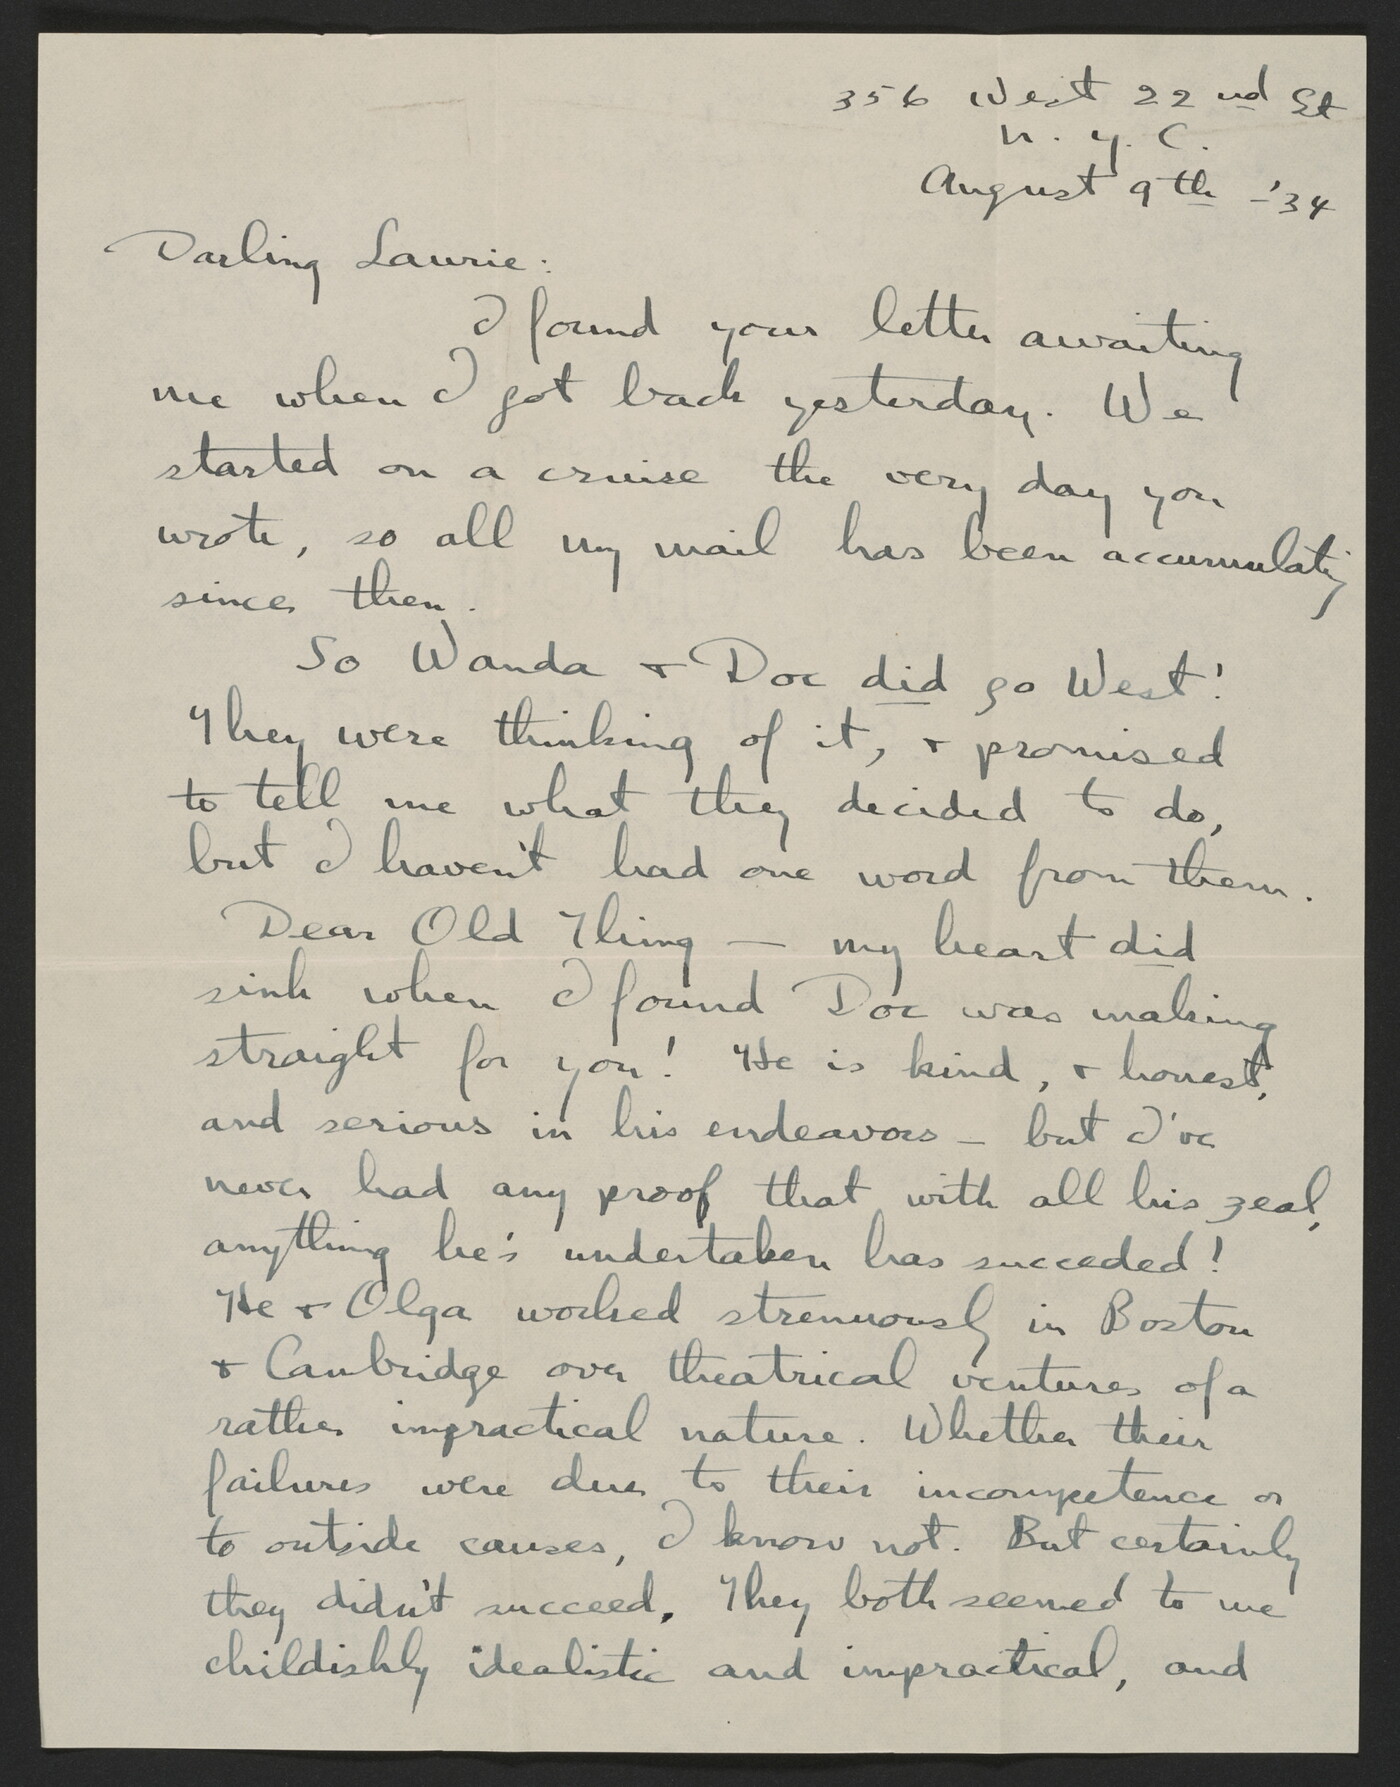 356 West 22nd St
N. Y. C.
August 9th - '34
Darling Laurie:
I found your letter awaiting
me when I got back yesterday. We
started on a cruise the very day you
wrote, so all my mail has been accumulating
since then.
So Wanda + Doc did go West!
They were thinking of it, + promised
to tell me what they decided to do,
but I haven't had one word from them.
Dear Old Thing — my heart did
sink when I found Doc was making
straight for you! He is kind, + honest,
and serious in his endeavors – but I've
never had any proof that with all his zeal,
anything he's undertaken has succeded!
He + Olga worked strenuously in Boston
+ Cambridge over theatrical ventures of a
rather impractical nature. Whether their
failures were due to their incompetence or
to outside causes, I know not. But certainly
they didn't succeed. They both seemed to me
childishly idealistic and impractical, and